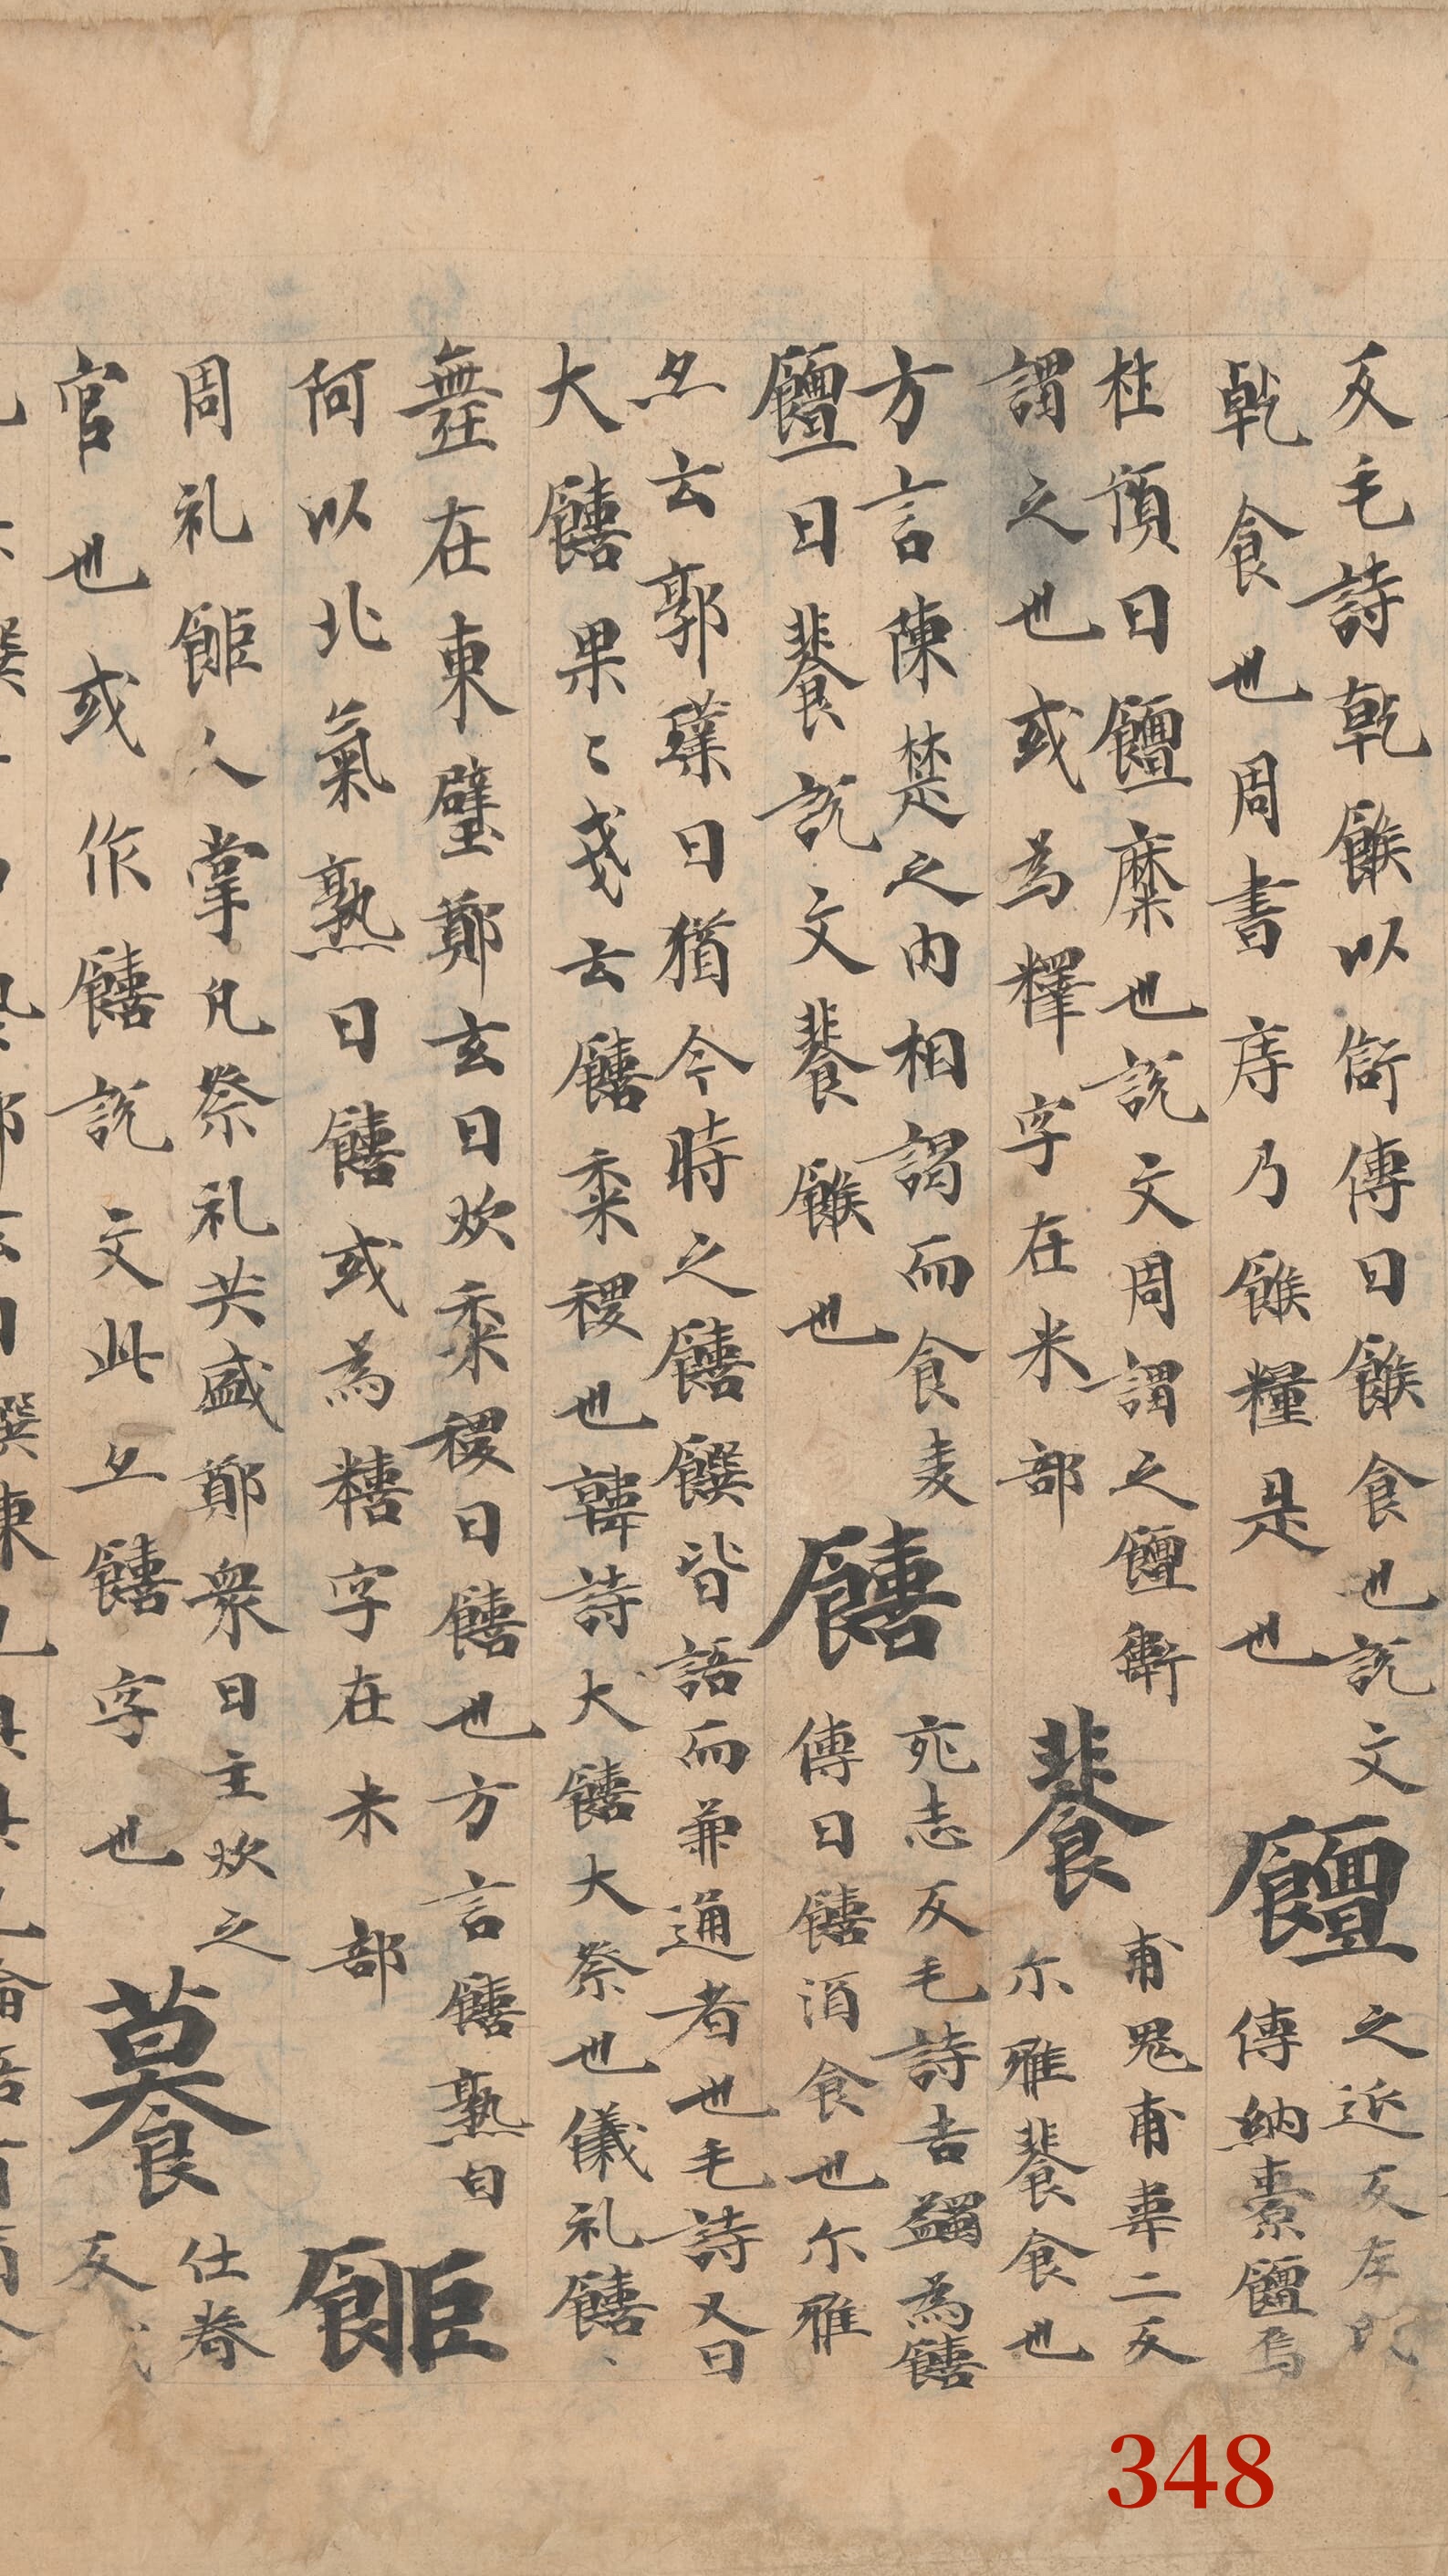 反毛詩乾餱以衎傳曰餱食也說文
乹食也周書庤乃餱糧是也
饘
之延反左氏
傳納橐饘焉
杜預曰饘糜也說文周謂之饘衛
謂之也或為字在米部
餥
甫鬼甫韋二反
尓雅餥食也
方言陳楚之内相謁而食麦
饘曰餥說文餥餱也
饎
充志反毛詩吉蠲為饎
傳曰饎酒食也尓雅
亦云郭璞曰猶今時之饎饌皆語而兼通者也毛詩又曰
大饎果〻戔云饎黍稷也韓詩大饎大祭也儀礼饎〻
爨在東壁鄭玄曰炊黍稷曰饎也方言饎熟自
阿以北氣熟曰饎或為糦字在米部
周礼人掌凡祭礼共盛鄭衆曰主炊之
官也或作饎說文此亦饎字也
仕眷
反
348